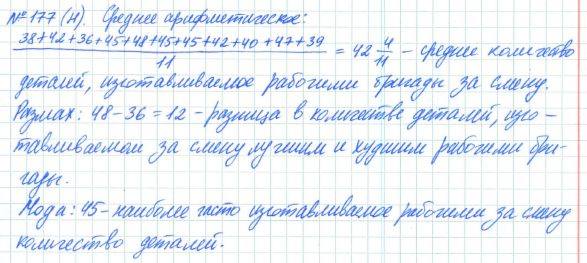 № 177 (н). Среднее арифметическое:
38+42+36+45+48+45+45+42+40+47+39
11
= 42 4/11 – среднее количество
деталей, изготавливаемое рабочими бригады за смену.
Размах: 48 – 36 = 12 – разница в количестве деталей, изго-
тавливаемом за смену лучшим и худшим рабочими бри-
гады.
Мода: 45 – наиболее часто изготавливаемое рабочими за смену
количество деталей.